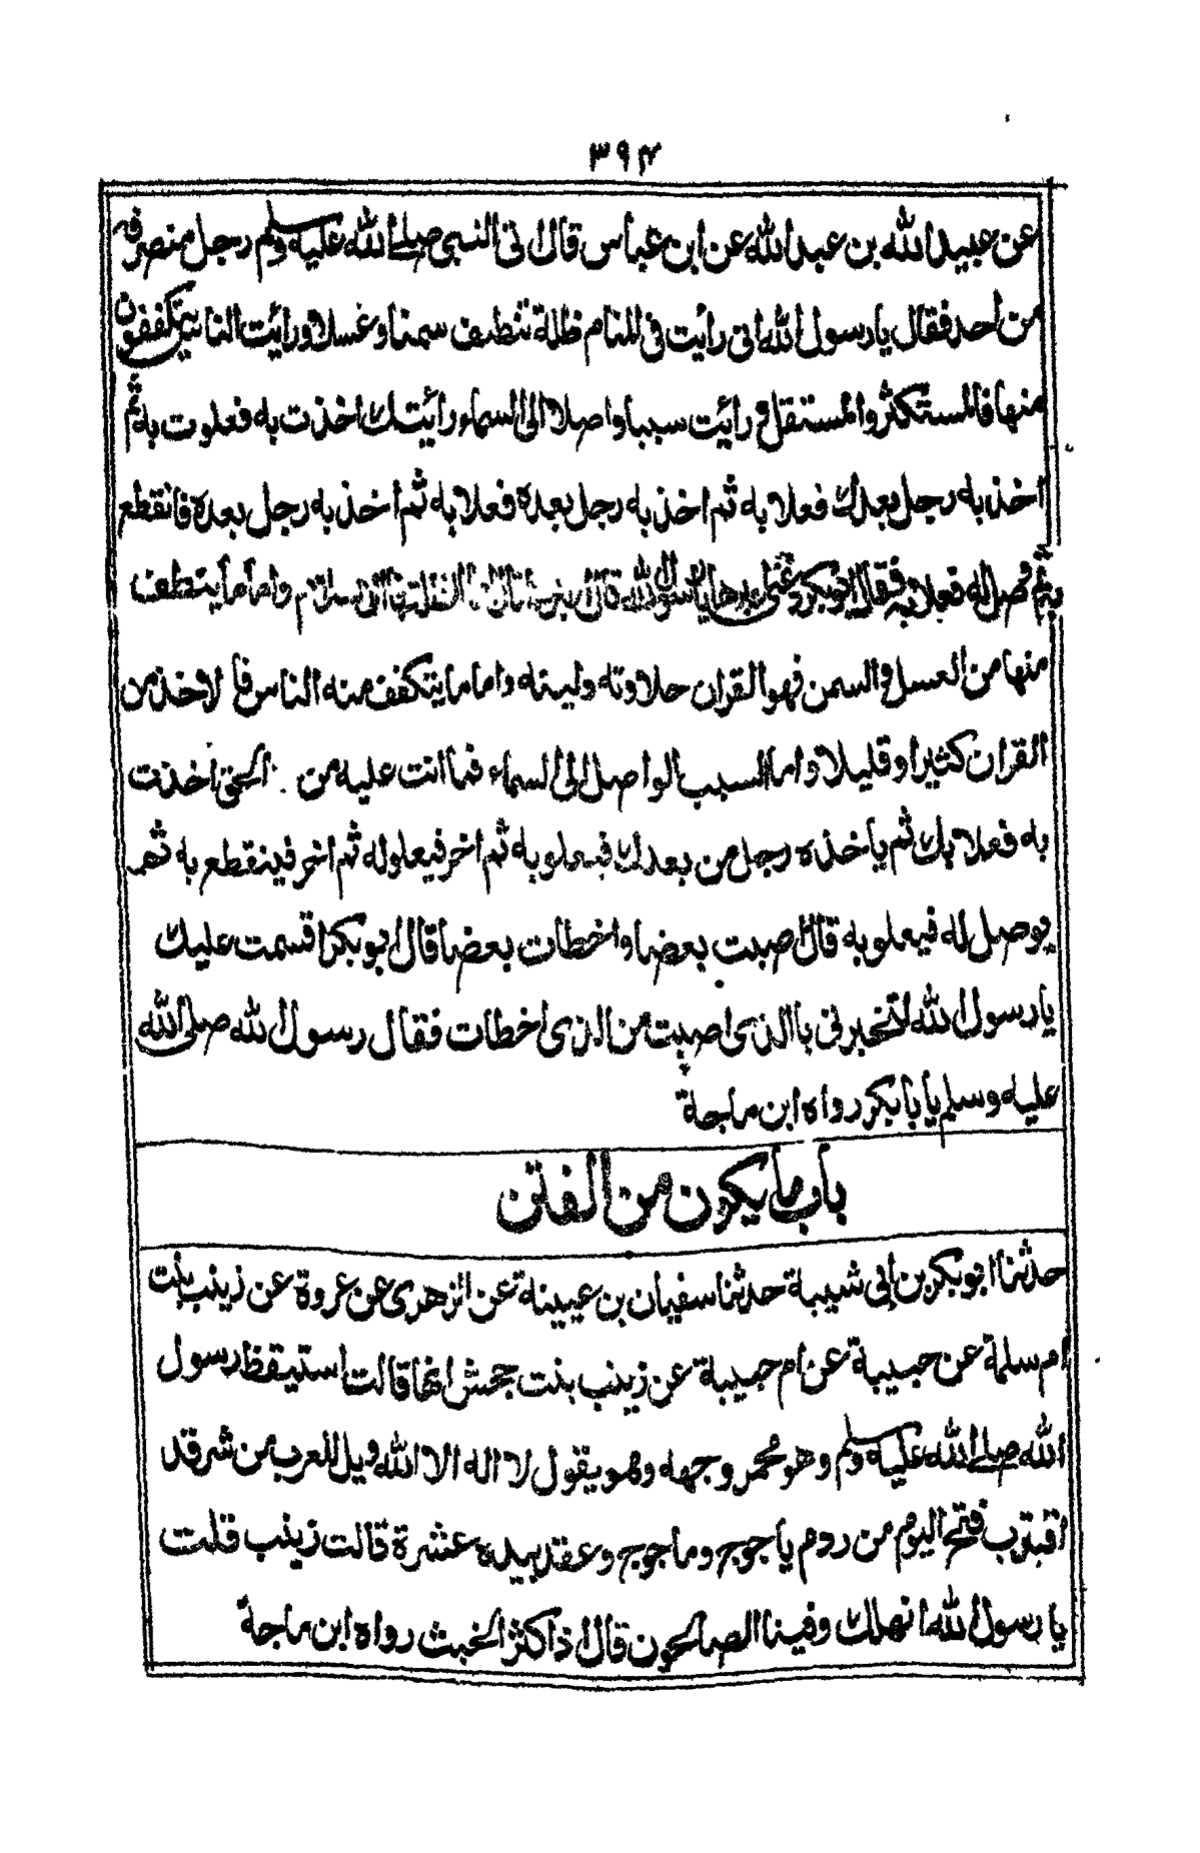 ۳۹۴
عن عبيد الله بن عبد الله عن ابن عباس قال اتى النبي صلى الله عليه وسلم رجل منصرفه
من احد فقال يا رسول الله انى رأيت فى المنام ظلة تنطف سمنا وعسلا ورأيت الناس يتكففون
منها فالمستكثر والمستقل ورأيت سببا واصلا الى السماء رأيتك اخذت به فعلوت به ثم
اخذ به رجل بعدك فعلا به ثم اخذ به رجل بعده فعلا به ثم اخذ به رجل بعده فانقطع
به ثم وصل له فعلا به فقال ابو بكر يا رسول الله قال واما ما ينطف
منها من العسل والسمن فهو القران حلاوته ولينه واما ما يتكفف منه الناس فالاخذ من
القران كثيرا وقليلا واما السبب الواصل الى السماء فما انت عليه من الحق اخذت
به فعلا بك ثم ياخذه رجل من بعدك فيعلو به ثم اخر فيعلو له ثم اخر فينقطع به ثم
يوصل له فيعلو به قال اصبت بعضا واخطات بعضا قال ابو بكر اقسمت عليك
يا رسول الله لتخبرنى باالذى اصبت من الذى اخطات فقال رسول الله صلى الله
عليه وسلم يا با بكر رواه ابن ماجة
باب ما يكون من الفتن
حدثنا ابو بكر بن ابى شيبة حدثنا سفيان بن عيينة عن الزهرى عن عروة عن زينب بنت
ام سلمة عن حبيبة عن ام حبيبة عن زينب بنت جحش انها قالت استيقظ رسول
الله صلى الله عليه وسلم وهو محمر وجهه وهو يقول لا اله الا الله ويل للعرب من شر قد
اقترب فتح اليوم من ردم ياجوج وماجوج وعقد بيده عشرة قالت زينب قلت
يا رسول الله انهلك وفينا الصالحون قال اذا كثر الخبث رواه ابن ماجة